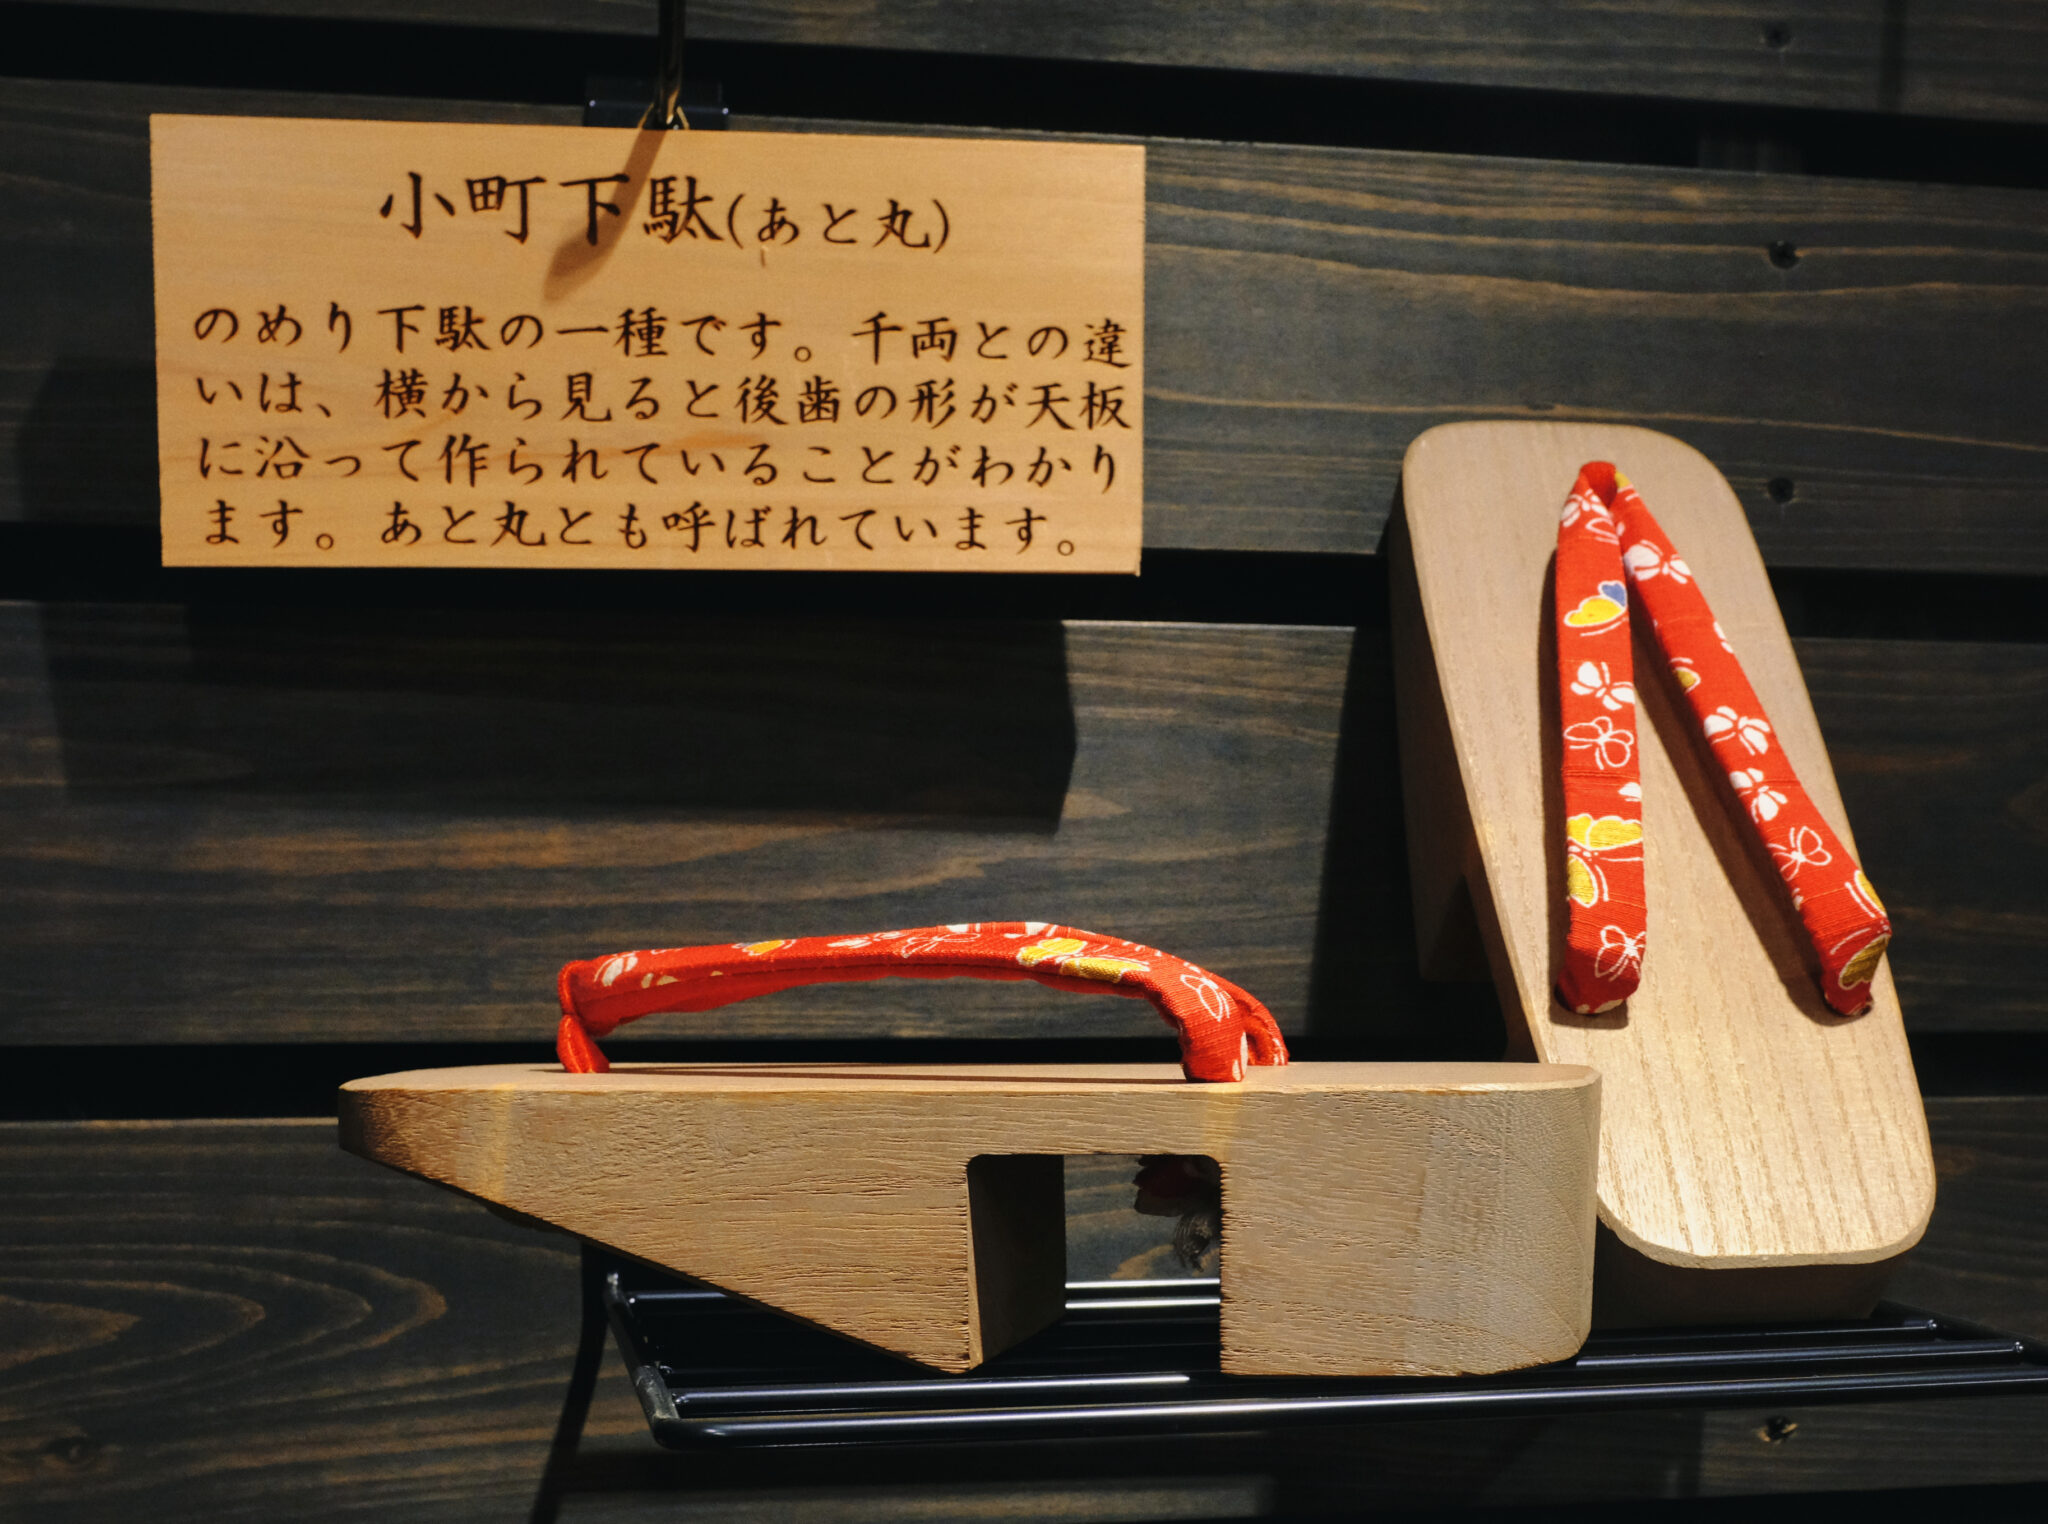 小町下駄(あと丸)
のめり下駄の一種です。千両との違
いは、横から見ると後歯の形が天板
に沿って作られていることがわかり
ます。あと丸とも呼ばれています。